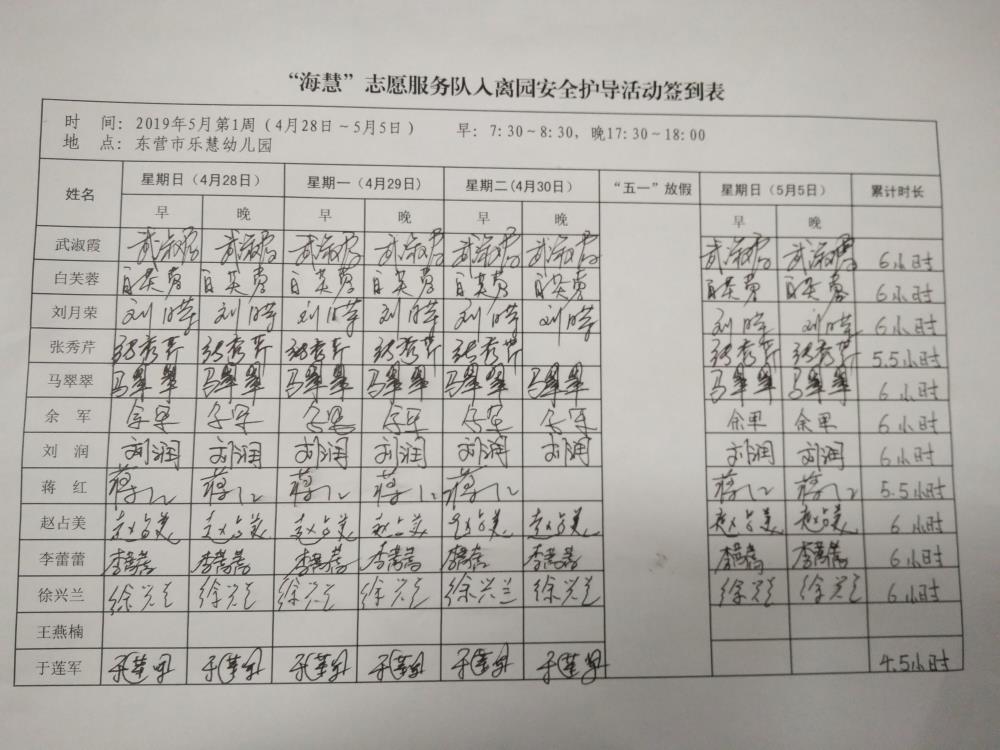 “海慧”志愿服务队入离园安全护导活动签到表
时 间：2019年5月第1周（4月28日～5月5日） 早：7:30～8:30，晚17:30～18:00
地 点：东营市乐慧幼儿园
姓名 星期日（4月28日） 星期一（4月29日) 星期二(4月30日） “五一”放假 星期日（5月5日） 累计时长
早 晚 早 晚 早 晚 早 晚
武淑霞 武淑霞 武淑霞 武淑霞 武淑霞 武淑霞 武淑霞 武淑霞 武淑霞 6小时
白芙蓉 白芙蓉 白芙蓉 白芙蓉 白芙蓉 白芙蓉 白芙蓉 白芙蓉 白芙蓉 6小时
刘月荣 刘月荣 刘月荣 刘月荣 刘月荣 刘月荣 刘月荣 刘月荣 刘月荣 6小时
张秀芹 张秀芹 张秀芹 张秀芹 张秀芹 张秀芹 张秀芹 张秀芹 5.5小时
马翠翠 马翠翠 马翠翠 马翠翠 马翠翠 马翠翠 马翠翠 马翠翠 马翠翠 6小时
余 军 余军 余军 余军 余军 余军 余军 余军 余军 6小时
刘 润 刘润 刘润 刘润 刘润 刘润 刘润 刘润 刘润 6小时
蒋 红 蒋红 蒋红 蒋红 蒋红 蒋红 蒋红 蒋红 5.5小时
赵占美 赵占美 赵占美 赵占美 赵占美 赵占美 赵占美 赵占美 赵占美 6小时
李蕾蕾 李蕾蕾 李蕾蕾 李蕾蕾 李蕾蕾 李蕾蕾 李蕾蕾 李蕾蕾 李蕾蕾 6小时
徐兴兰 徐兴兰 徐兴兰 徐兴兰 徐兴兰 徐兴兰 徐兴兰 徐兴兰 徐兴兰 6小时
王燕楠
于莲军 于莲军 于莲军 于莲军 于莲军 于莲军 于莲军 4.5小时